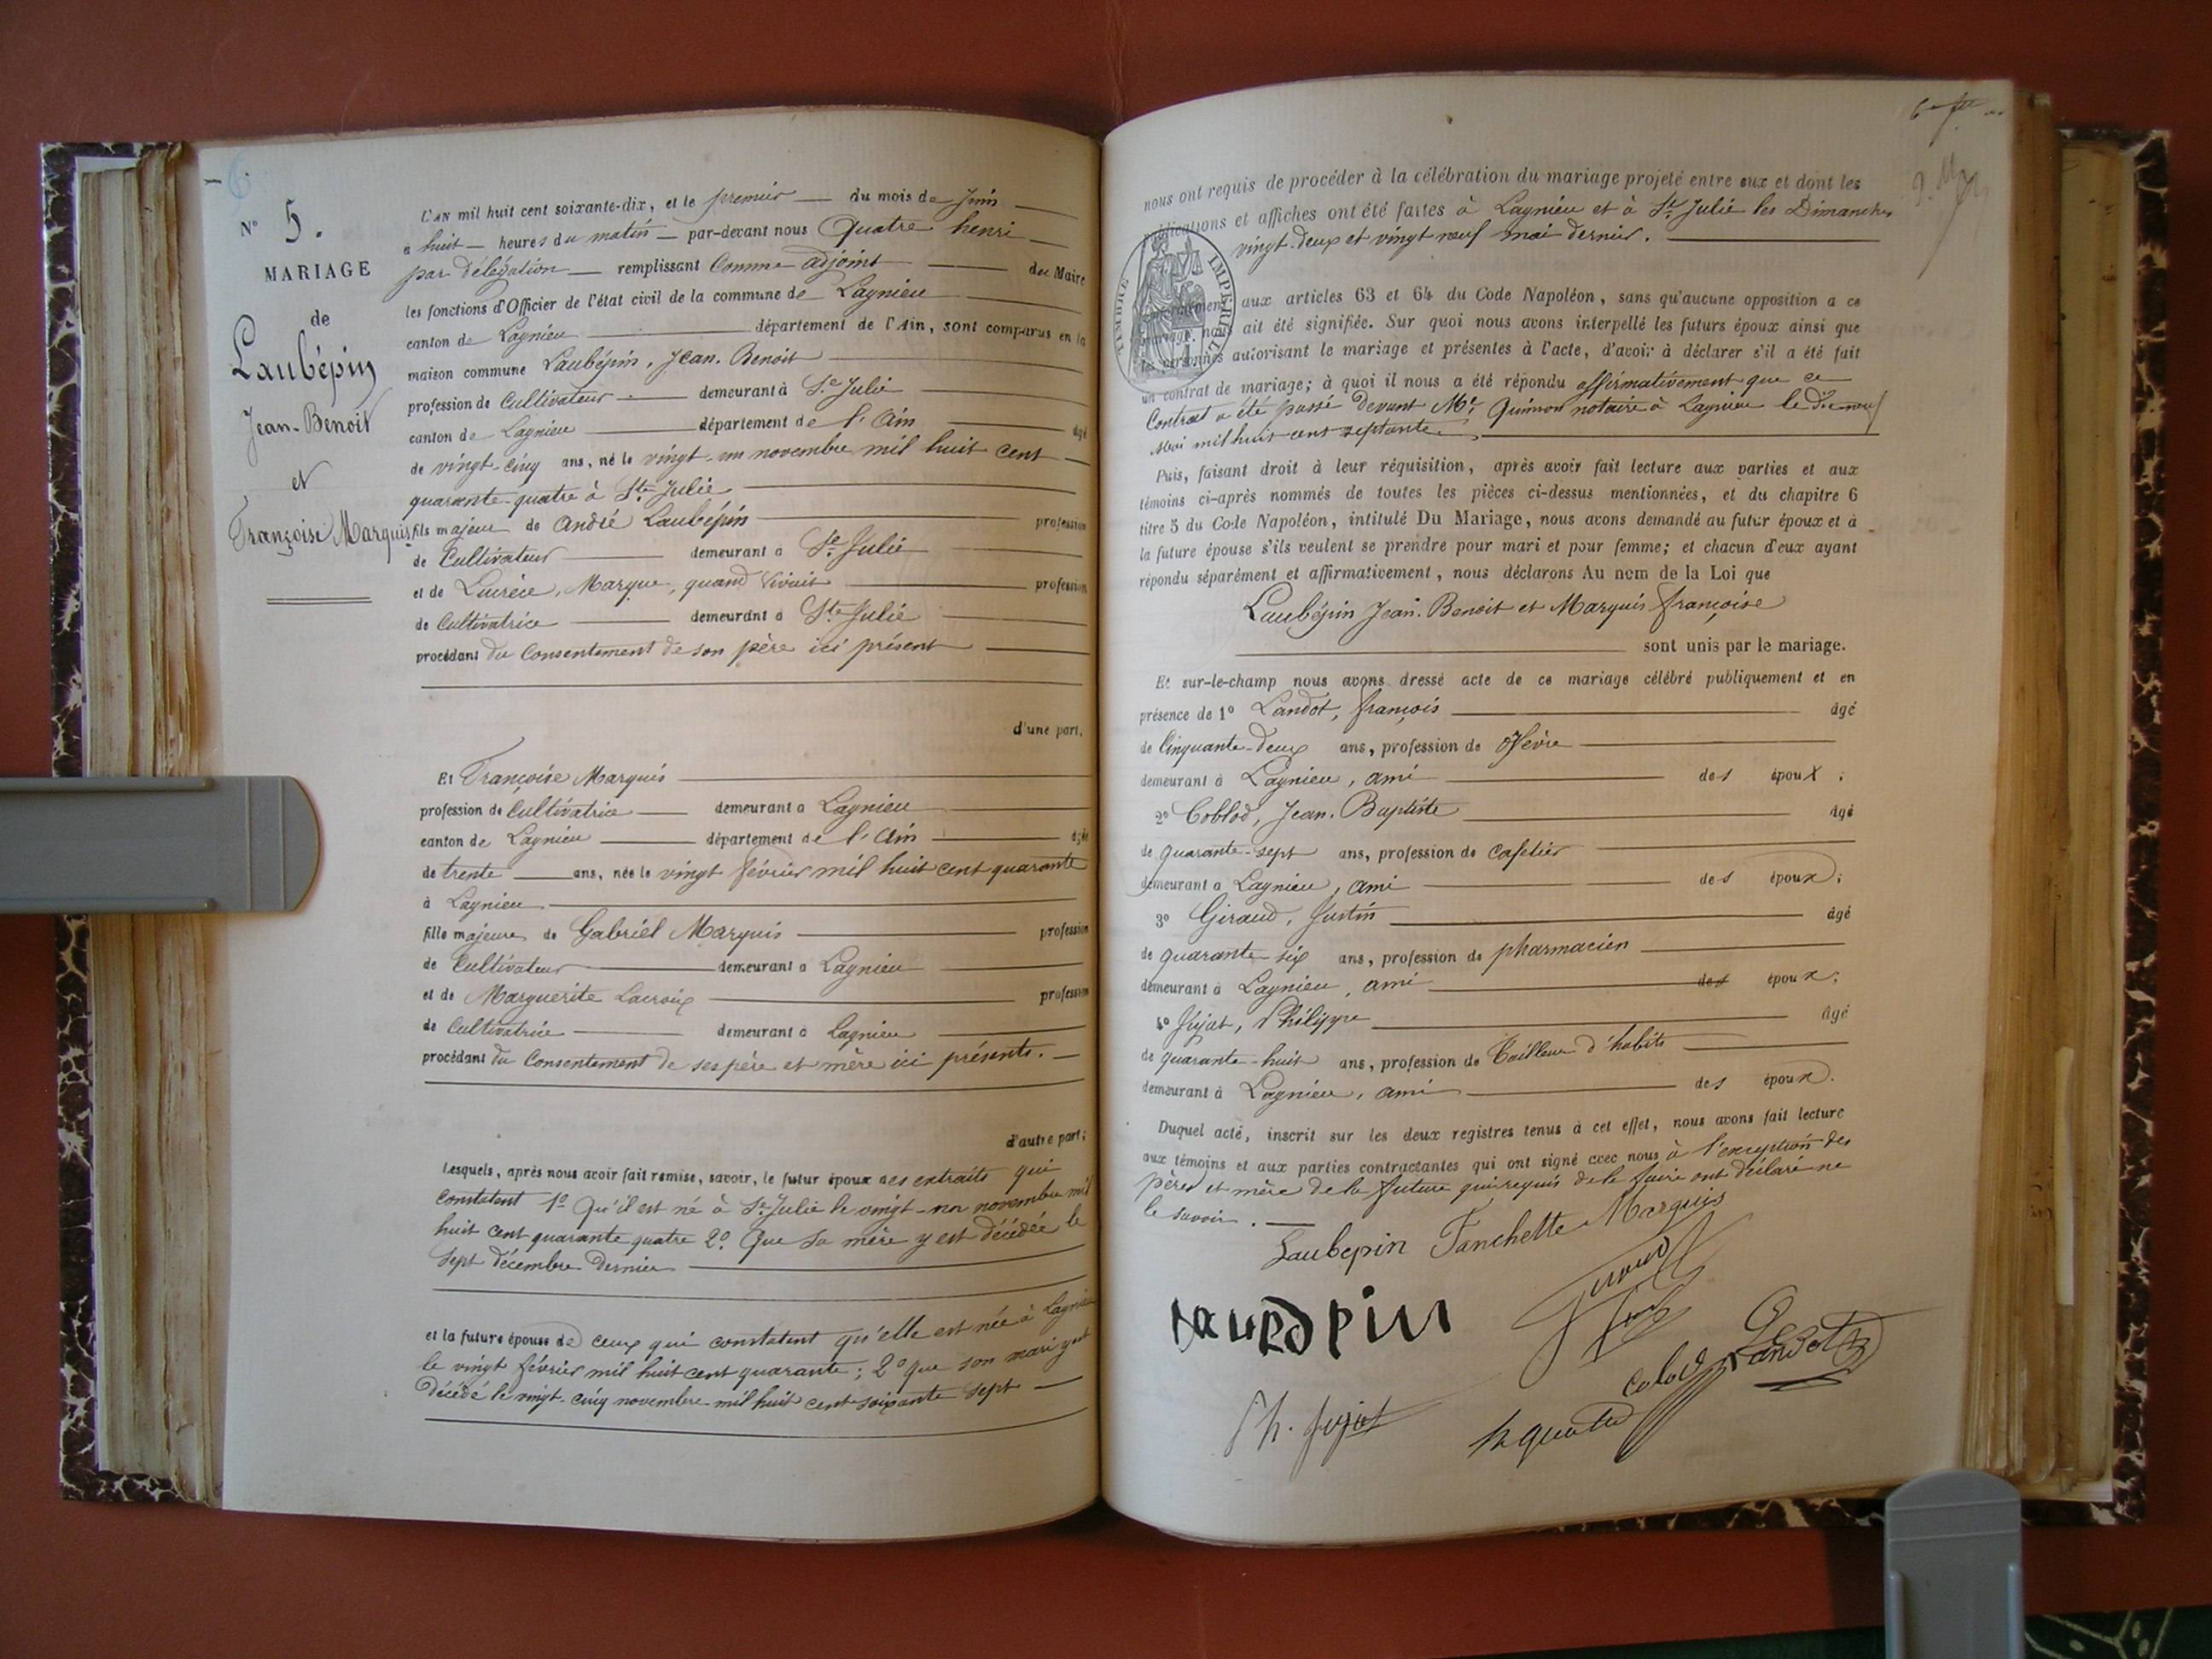 6
N° 5.
MARIAGE
de
Laubépin
Jean-Benoit
et
Françoise Marquis
L'AN mil huit cent soixante-dix, et le premier du mois de Juin
à huit heures du matin par-devant nous Quatre henri
par délégation remplissant Comme adjoint du Maire
les fonctions d'Officier de l'état civil de la commune de Lagnieu
canton de Lagnieu département de l'Ain, sont comparus en la
maison commune Laubépin, Jean-Benoit
profession de Cultivateur demeurant à Ste Julie
canton de Lagnieu département de l'Ain âgé
de vingt-cinq ans, né le vingt-un novembre mil huit cent
quarante-quatre à Ste Julie
fils majeur de André Laubépin profession
de Cultivateur demeurant à Ste Julie
et de Lucrèce, Marque, quand vivait profession
de Cultivatrice demeurant à Ste Julie
procédant du Consentement de son père ici présent
d'une part,
Et Françoise Marquis
profession de Cultivatrice demeurant à Lagnieu
canton de Lagnieu département de l'Ain âgée
de trente ans, née le vingt février mil huit cent quarante
à Lagnieu
fille majeure de Gabriel Marquis profession
de Cultivateur demeurant à Lagnieu
et de Marguerite Lacroix profession
de Cultivatrice demeurant à Lagnieu
procédant du Consentement de ses père et mère ici présents.
d'autre part;
Lesquels, après nous avoir fait remise, savoir, le futur époux des extraits qui
Constatent 1° Qu'il est né à Ste Julie le vingt-un novembre mil
huit cent quarante quatre 2° Que sa mère y est décédée le
sept décembre dernier
et la future épouse de ceux qui constatent qu'elle est née à Lagnieu
le vingt février mil huit cent quarante; 2° que son mari y est
décédé le vingt-cinq novembre mil huit cent soixante sept
nous ont requis de procéder à la célébration du mariage projeté entre eux et dont les
publications et affiches ont été faites à Lagnieu et à Ste Julie les Dimanches
vingt-deux et vingt neuf mai dernier.
TIMBRE IMPERIAL
conformément aux articles 63 et 64 du Code Napoléon, sans qu'aucune opposition à ce
mariage nous ait été signifiée. Sur quoi nous avons interpellé les futurs époux ainsi que
les personnes autorisant le mariage et présentes à l'acte, d'avoir à déclarer s'il a été fait
un contrat de mariage; à quoi il nous a été répondu affirmativement que ce
Contrat a été passé devant Me. Quinson notaire à Lagnieu le dix neuf
mai mil huit cent septante.
Puis, faisant droit à leur réquisition, après avoir fait lecture aux parties et aux
témoins ci-après nommés de toutes les pièces ci-dessus mentionnées, et du chapitre 6
titre 5 du Code Napoléon, intitulé Du Mariage, nous avons demandé au futur époux et à
la future épouse s'ils veulent se prendre pour mari et pour femme; et chacun d'eux ayant
répondu séparément et affirmativement, nous déclarons Au nom de la Loi que
Laubépin Jean-Benoit et Marquis françoise
sont unis par le mariage.
Et sur-le-champ nous avons dressé acte de ce mariage célébré publiquement et en
présence de 1° Landot, françois âgé
de Cinquante-deux ans, profession de
demeurant à Lagnieu, ami des époux;
2° Coblod, Jean-Baptiste âgé
de quarante-sept ans, profession de cafetier
demeurant à Lagnieu, ami des époux;
3° Giraud, Justin âgé
de quarante six ans, profession de pharmacien
demeurant à Lagnieu, ami des époux;
4° Jujat, Philippe âgé
de quarante-huit ans, profession de Tailleur d'habits
demeurant à Lagnieu, ami des époux.
Duquel acte, inscrit sur les deux registres tenus à cet effet, nous avons fait lecture
aux témoins et aux parties contractantes qui ont signé avec nous à l'exception des
père et mère de la future qui requis de le faire ont déclaré ne
le savoir.
Laubepin Fanchette Marquis
Giraud
Landot
Ph. Jujat